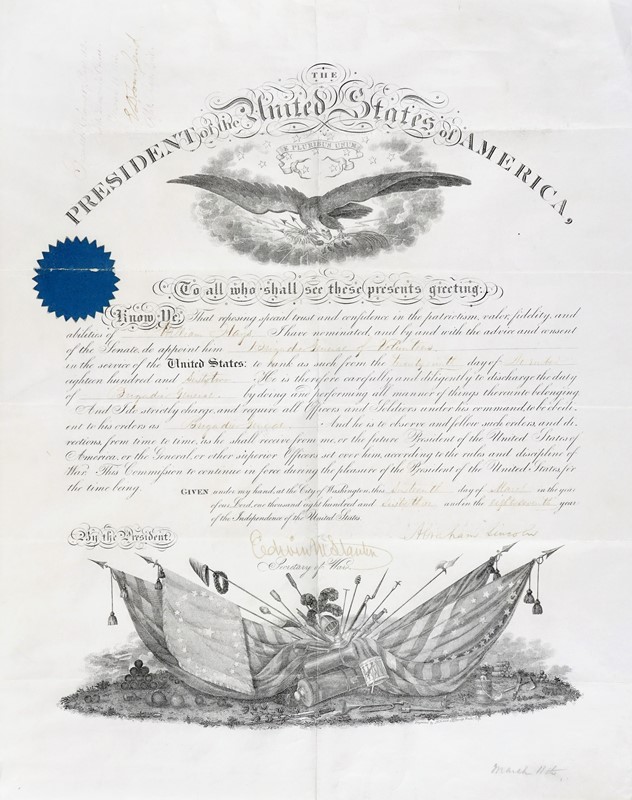 THE
PRESIDENT of the United States of AMERICA,
E PLURIBUS UNUM
To all who shall see these presents greeting:
Know Ye, That reposing special trust and confidence in the patriotism, valor, fidelity, and
abilities of I have nominated, and by and with the advice and consent
of the Senate, do appoint him Brigadier General of Volunteers
in the service of the United States: to rank as such from the day of
eighteen hundred and He is therefore carefully and diligently to discharge the duty
of Brigadier General by doing and performing all manner of things thereunto belonging
And I do strictly charge, and require all Officers and Soldiers under his command, to be obedi-
ent to his orders as Brigadier General And he is to observe and follow such orders, and di-
rections, from time to time, as he shall receive from me, or the future President of the United States of
America, or the General, or other superior Officers set over him, according to the rules and discipline of
War. This Commission to continue in force during the pleasure of the President of the United States, for
the time being.
GIVEN under my hand, at the City of Washington, this day of March in the year
of our Lord, one thousand eight hundred and and in the year
of the Independence of the United States.
By the President,
Abraham Lincoln
Edwin M Stanton
Secretary of War.
March 11th